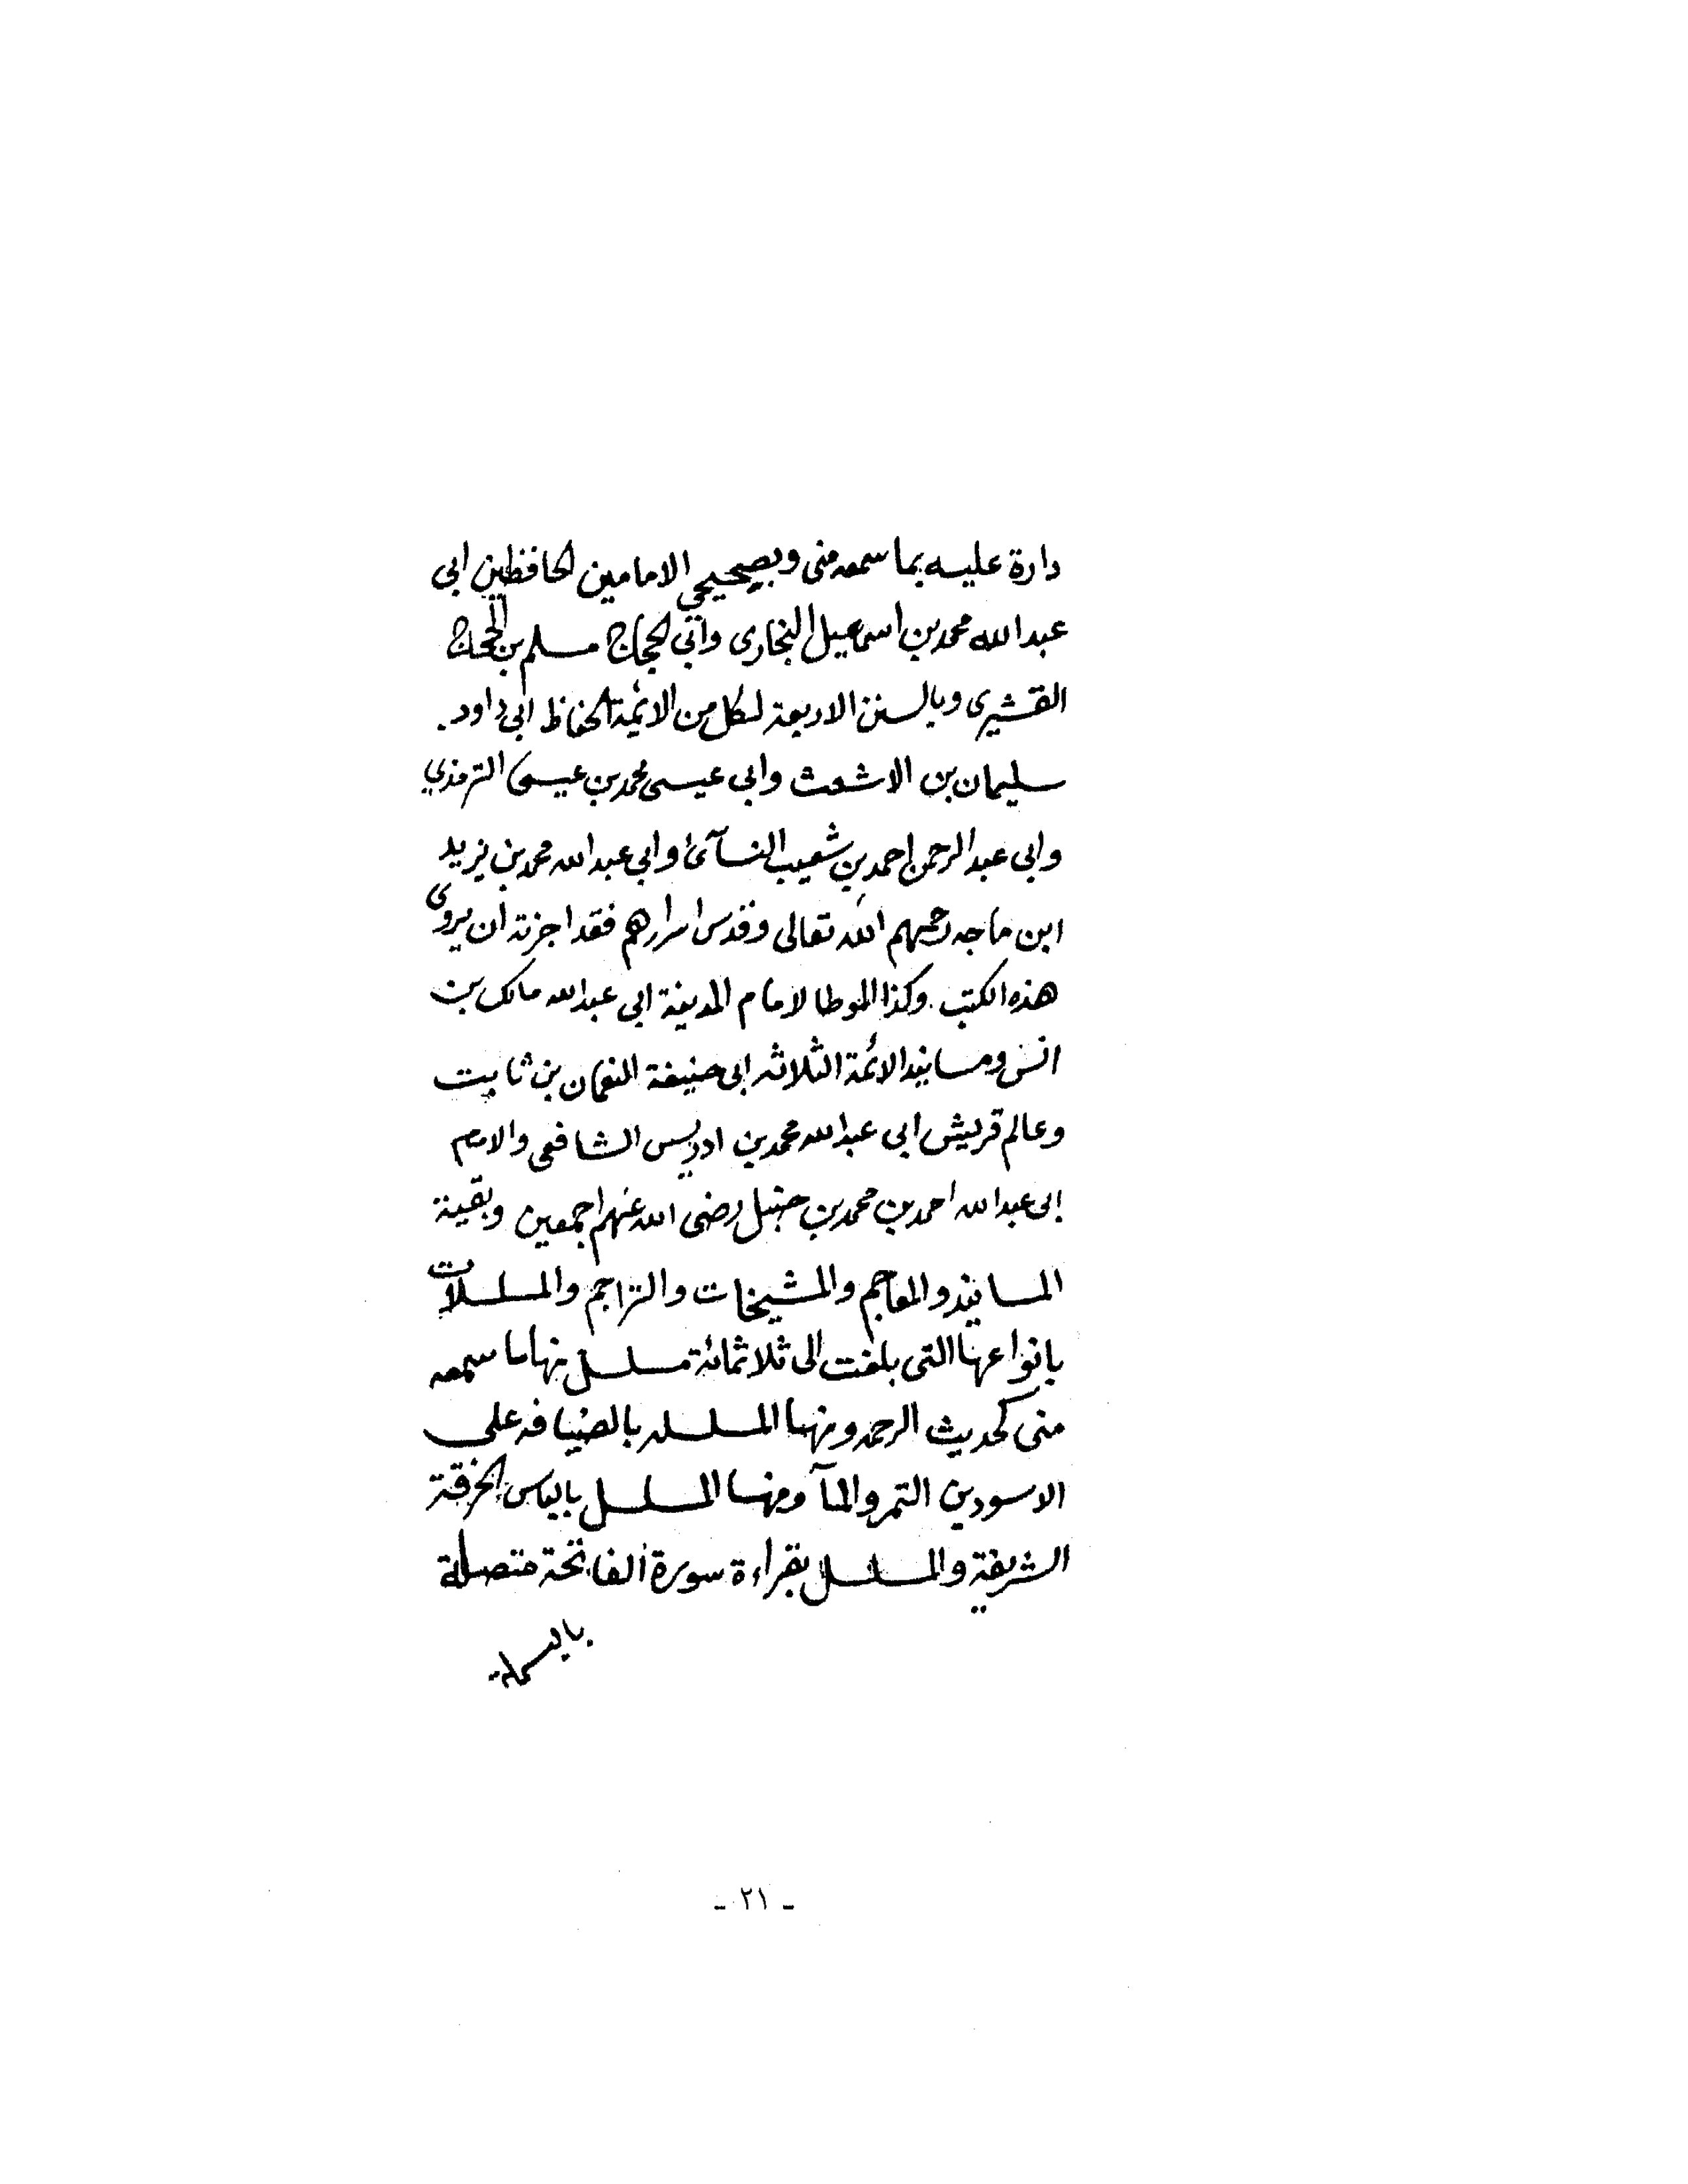 دارة عليه بما سمعه منى وبصحيحي الامامين الحافظين ابى
عبدالله محمد بن اسماعيل البخارى وابى الحجاج مسلم بن الحجاج
القشيرى وبالسنن الاربعة لكل من الائمة الحفاظ ابى داود.
سليمان بن الاشعث وابى عيسى محمد بن عيسى الترمذي
وابى عبدالرحمن احمد بن شعيب النسآئ وابي عبدالله محمد بن يزيد
ابن ماجه رحمهم الله تعالى وقدس اسرارهم فقد اجزته ان يروى
هذه الكتب وكذا الموطا لامام المدينة ابى عبدالله مالك بن
انس ومسانيد الائمة الثلاثه ابى حنيفة النعمان بن ثابت
وعالم قريش ابى عبدالله محمد بن ادريس الشافعى والامام
ابى عبدالله احمد بن محمد بن حنبل رضى الله عنهم اجمعين وبقية
المسانيد والمعاجم والمشيخات والتراجم والمسلسلات
بانواعها التى بلغت الى ثلاثمائة مسلسل منها ما سمعه
منى كحديث الرحمه ومنها المسلسله بالضيافه على
الاسودين التمر والمآ ومنها المسلسل بالباس الخرقة
الشريفة والمسلسل بقراءة سورة الفاتحة متصلة
بالبسملة
- ٢١ -